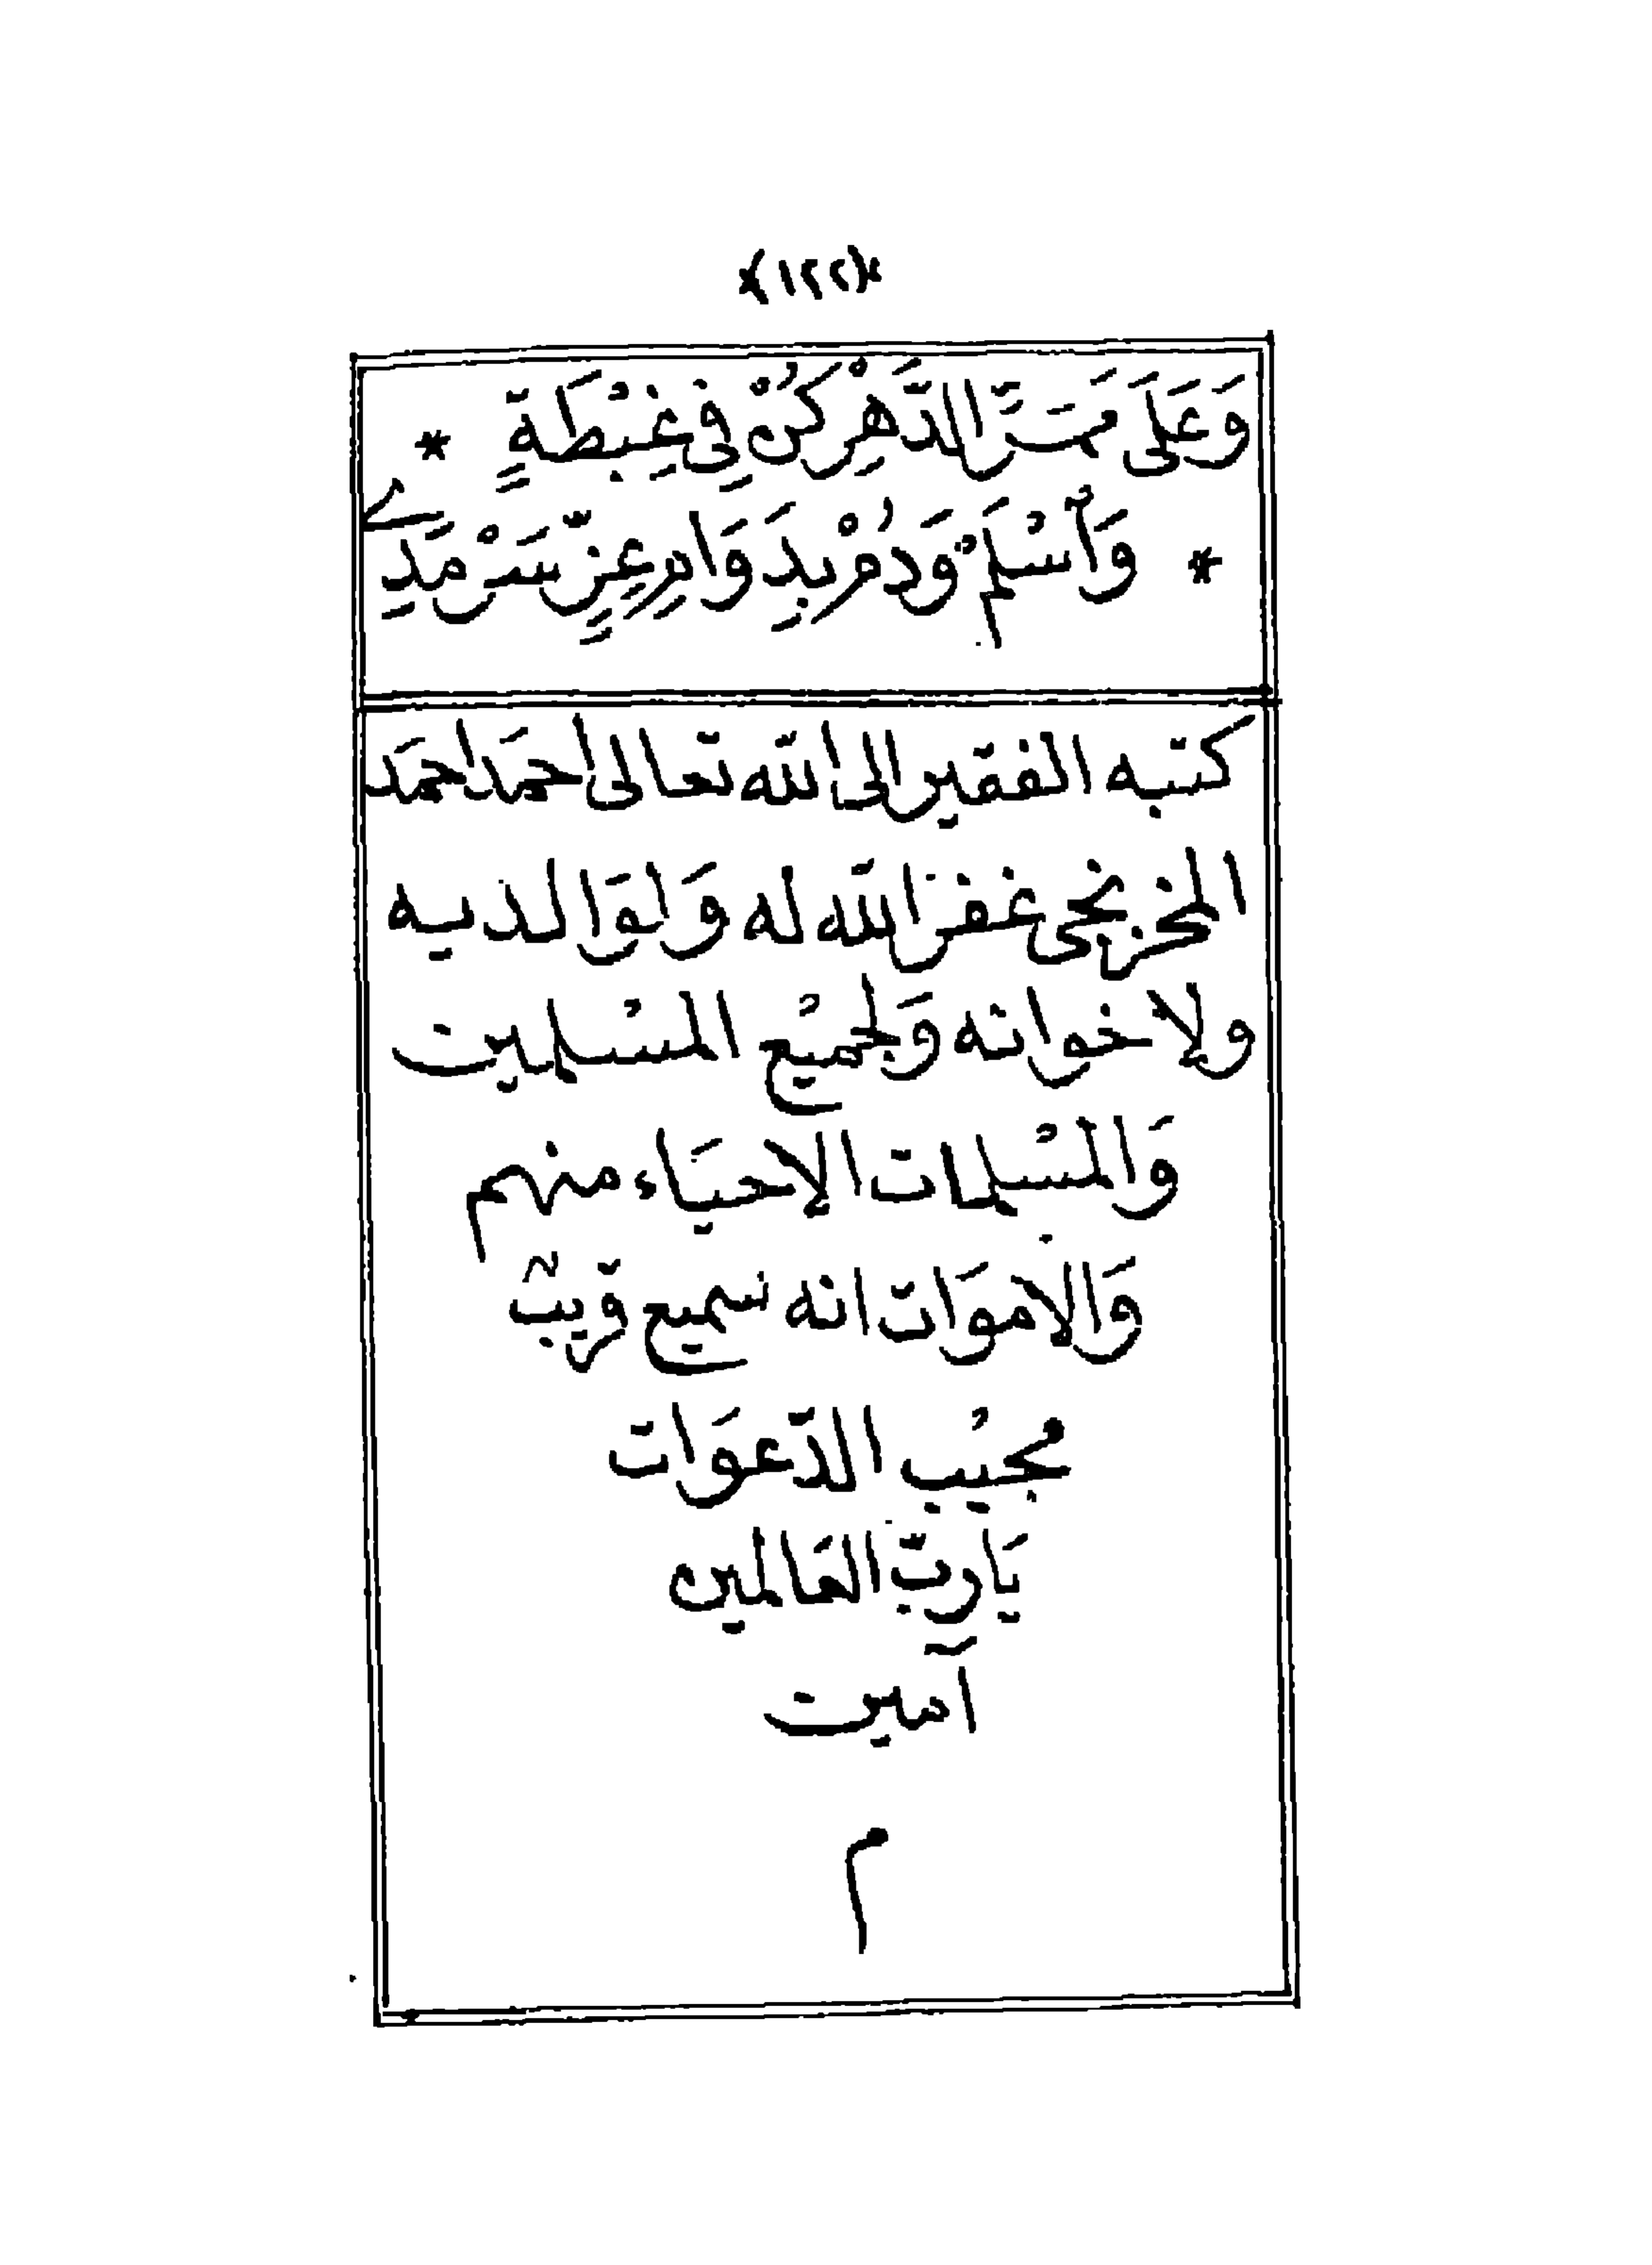 *(١٢٢)*
وَعَلَى مَمَرِّ الدَّهْرِ كُنْ فِي غِبْطَةٍ *
* وَٱسْلَمْ وَدُمْ بِدَوَامِ عِزٍّ سَرْمَدِ
كتبه الفقير الى الله تعالى احمد احمد
الخزبجى غفر الله له وَلوَالديه
ولاخوانه وَلجميع المسلمين
وَالمسلمات الاحيَاء منهم
وَالاموَات انه سميع قريبٌ
مجيب الدّعوَات
يَاربّ العَالمين
آمين
م